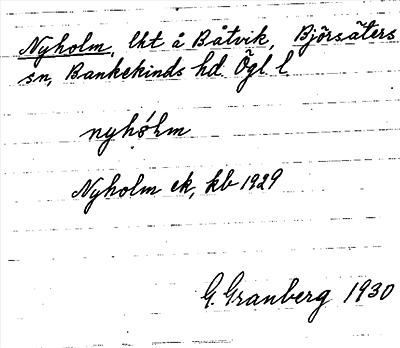 Nyholm, lht å Båtvik, Björsäters
sn, Bankekinds hd. Ögl l
nyhólm
Nyholm ek, kb 1929
G. Granberg 1930